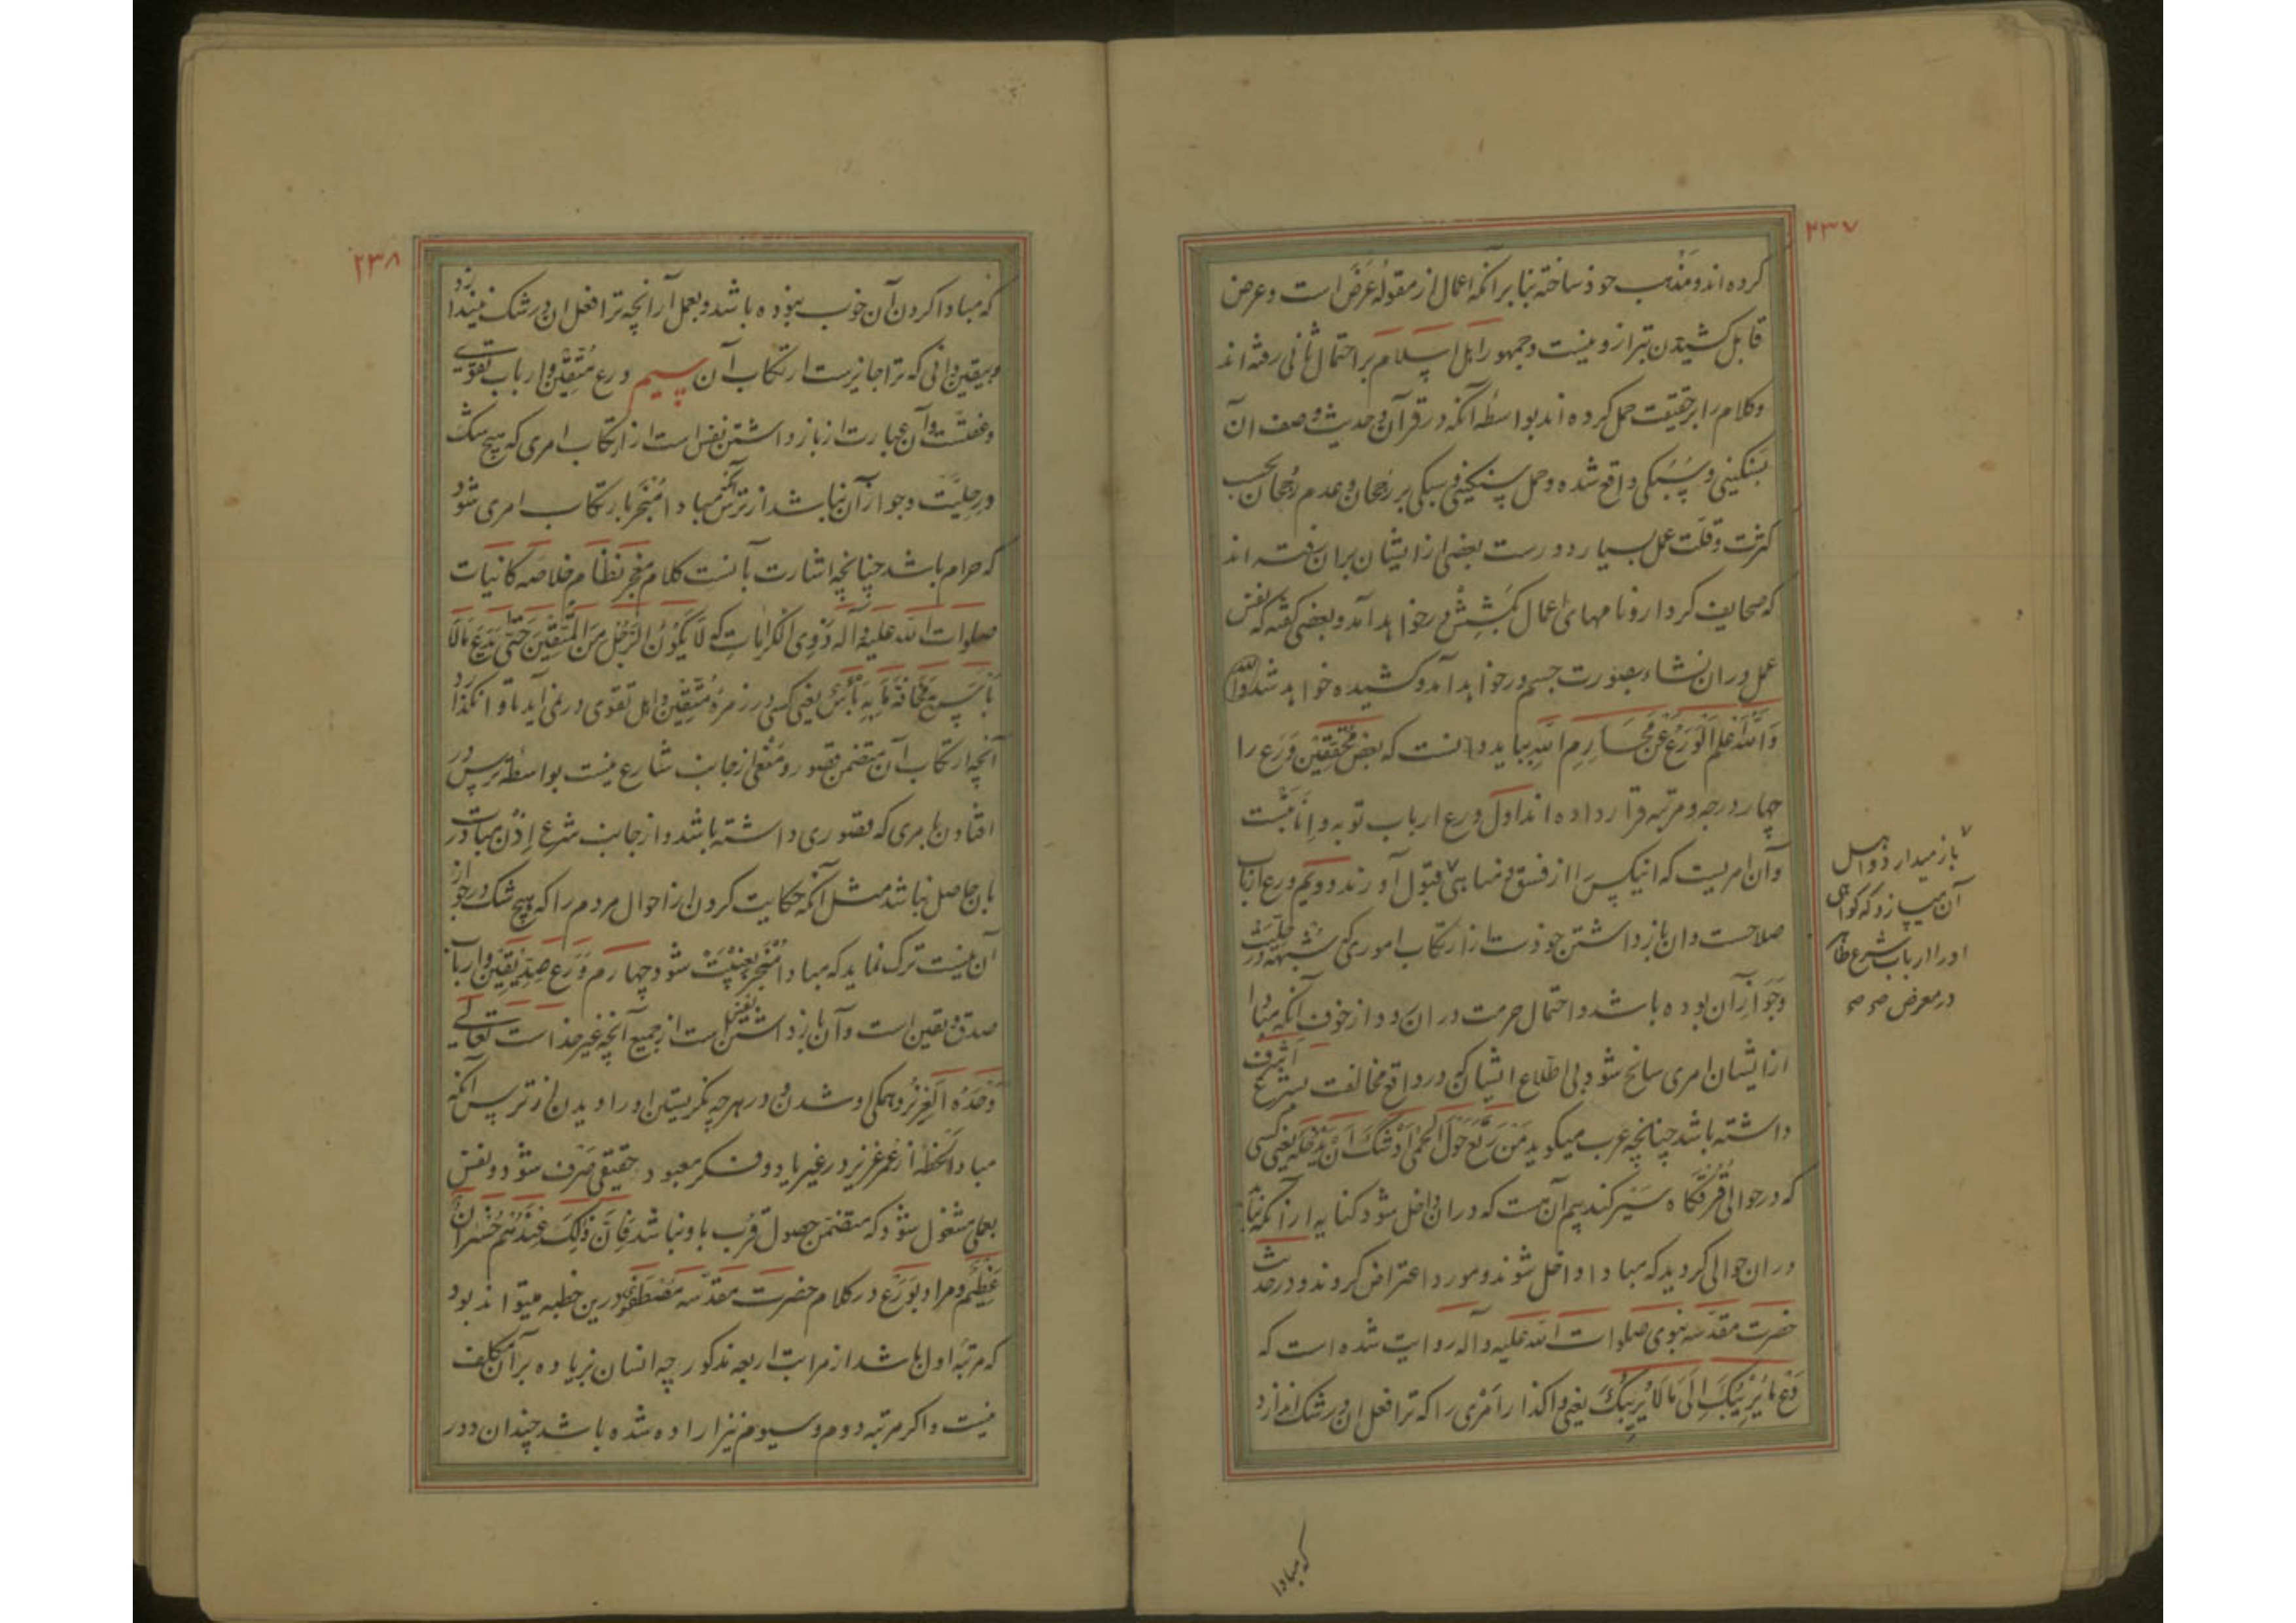 ۲۳۷
کرده اند و مذهب خود ساخته بنا بر آنکه اعمال از مقوله عَرَض است و عرض
قابل کشیدن بترازو نیست و جمهور اهل اسلام بر احتمال ثانی رفته اند
و کلام را بر حقیقت حمل کرده اند بواسطه آنکه در قرآن و حدیث وصف آن
بسنکینی و سبکی واقع شده و حمل سنکینی و سبکی بر رجحان و عدم رجحان بحسب
کثرت و قلت عمل بسیار دورست بعضی از ایشان بران رفته اند
که صحایف کردار و نامهای اعمال بکشش در خواهد آمد و بعضی کفته که نفس
عمل دران نشاء بصورت جسم در خواهد آمد و کشیده خواهد شد والله
وَاللّٰه اعلم الْوَرَعُ عَنْ مَحَارِمِ اللّٰهِ بباید دانست که بعض محققین وَرَع را
چهار درجه و مرتبه قرار داده اند اول ورع ارباب توبه و اِنابتست
و آن امریست که انیکس را از فسق و مناهی ۷ قبول آورند دویم ورع ارباب
صلاحست و ان بازداشتن خودست از ارتکاب اموری که شبهه در حلیت
و جَوازِ آن بوده باشد و احتمال حرمت در ان رود از خوف آنکه مبادا
از ایشان امری سانح شود بی اطلاع ایشان که در واقع مخالفت شرع اشرف
داشته باشد چنانچه عرب میکوید مَنْ رَتَعَ حَوْلَ الْحِمٰی اَوْشَکَ اَنْ یَدْخُلَهُ یعنی کسی
که در حوالی قُرُقْگاه سَیر کند بیم آن هست که در ان داخل شود کنایه از آنکه نباید
در ان حوالی کردید که مبادا داخل شوند و مورد اعتراض کردند و در حدیث
حضرت مقدسه نبوی صلوات الله علیه و آله روایت شده است که
دَعْ مَا یُرِیْبُکَ اِلَی مَا لَا یُرِیْبُکَ یعنی واکذار امری را که ترا فعل ان در شک اندازد
۷
باز میدارد و اهل
آن میسازد که کواهی
او را ارباب شرع طاهر
در معرض صح صح
که مبادا
۲۳۸
که مبادا کردن آن خوب نبوده باشد و بعمل آر آنچه ترا فعل ان در شک نیندازد
و بیقین دانی که ترا جایزست ارتکاب آن سیم ورع متقین و ارباب تقوی
و عفتست و آن عبارت از باز داشتن نفس است از ارتکاب امری که هیچ شک
در حلیت و جواز آن نباشد از ترس آنکه مبادا منجر بارتکاب امری شود
که حرام باشد چنانچه اشارت بآنست کلام معجز نظام خلاصه کائنات
صلوات الله علیه و اله ذوی الکرامات که لَا یَکُونُ الرَّجُلُ مِنَ الْمُتَّقِینَ حَتّٰی یَدَعَ مَا لَا
بَاْسَ بِهِ مَخَافَةَ مَا بِهِ بَاْسٌ یعنی کسی در زمره متقین و اهل تقوی در نمی آید تا وانکذارد
آنچه ارتکاب آن متضمن قصور و منعی از جانب شارع نیست بواسطه ترس در
افتادن بامری که قصوری داشته باشد و از جانب شرع اِذن مباشرت
بان حاصل نباشد مثل آنکه حکایت کردن از احوال مردم را که هیچ شک در جواز
آن نیست ترک نماید که مبادا منجر بغیبت شود چهارم وَرَع صدیقین و ارباب
صدق و یقین است و آن بازداشتن نفس است از جمیع آنچه غیر خداست تعالی
وَحْدَهُ الْعَزِیْز و همکی او شدن و در هر چه نکریستن او را دیدن از ترس آنکه
مبادا لحظهٔ از عمر عزیز در غیر یاد و فکر معبود حقیقی صَرْف شود و نفس
بعملی مشغول شود که متضمن حصول قُرب باو نباشد فَاِنَّ ذٰلِکَ عِنْدَهُمْ خُسْرَانٌ
عَظِیْم و مراد بوَرَع در کلام حضرت مقدسه مُصْطَفَوی درین خطبه میتواند بود
که مرتبه اول باشد از مراتب اربعه مذکور چه انسان بزیاده بر آن مکلف
نیست و اکر مرتبه دوم و سیوم نیز اراده شده باشد چندان دور